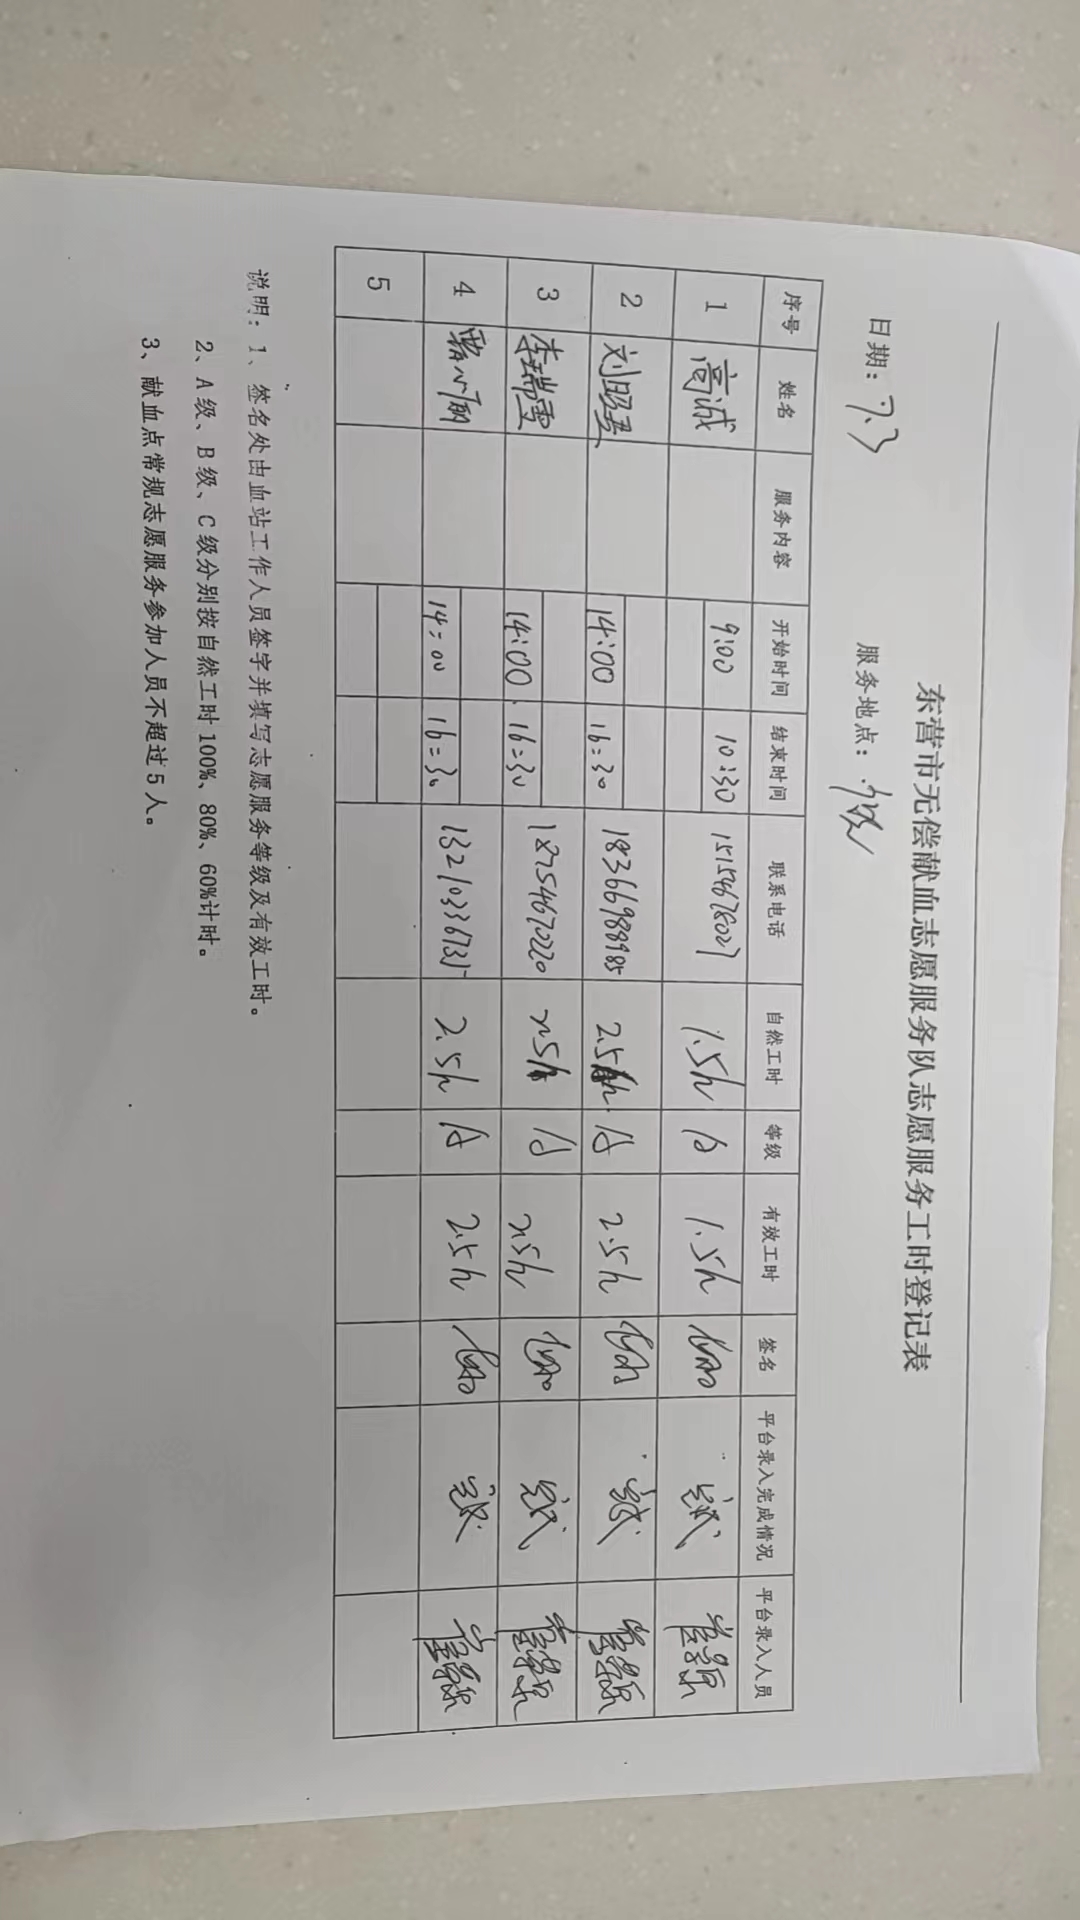 东营市无偿献血志愿服务队志愿服务工时登记表
日期：7.3 服务地点：
序号 姓名 服务内容 开始时间 结束时间 联系电话 自然工时 等级 有效工时 签名 平台录入完成情况 平台录入人员
1 高诚 9:00 10:30 15154678027 1.5h 1.5h 完成
2 刘昭 14:00 16:30 18366988985 2.5h A 2.5h 完成
3 李瑞雪 14:00 16:30 18754670220 2.5h A 2.5h 完成
4 14:00 16:30 13210336735 2.5h A 2.5h 完成
5
说明：1、签名处由血站工作人员签字并填写志愿服务等级及有效工时。
2、A级、B级、C级分别按自然工时100%、80%、60%计时。
3、献血点常规志愿服务参加人员不超过5人。